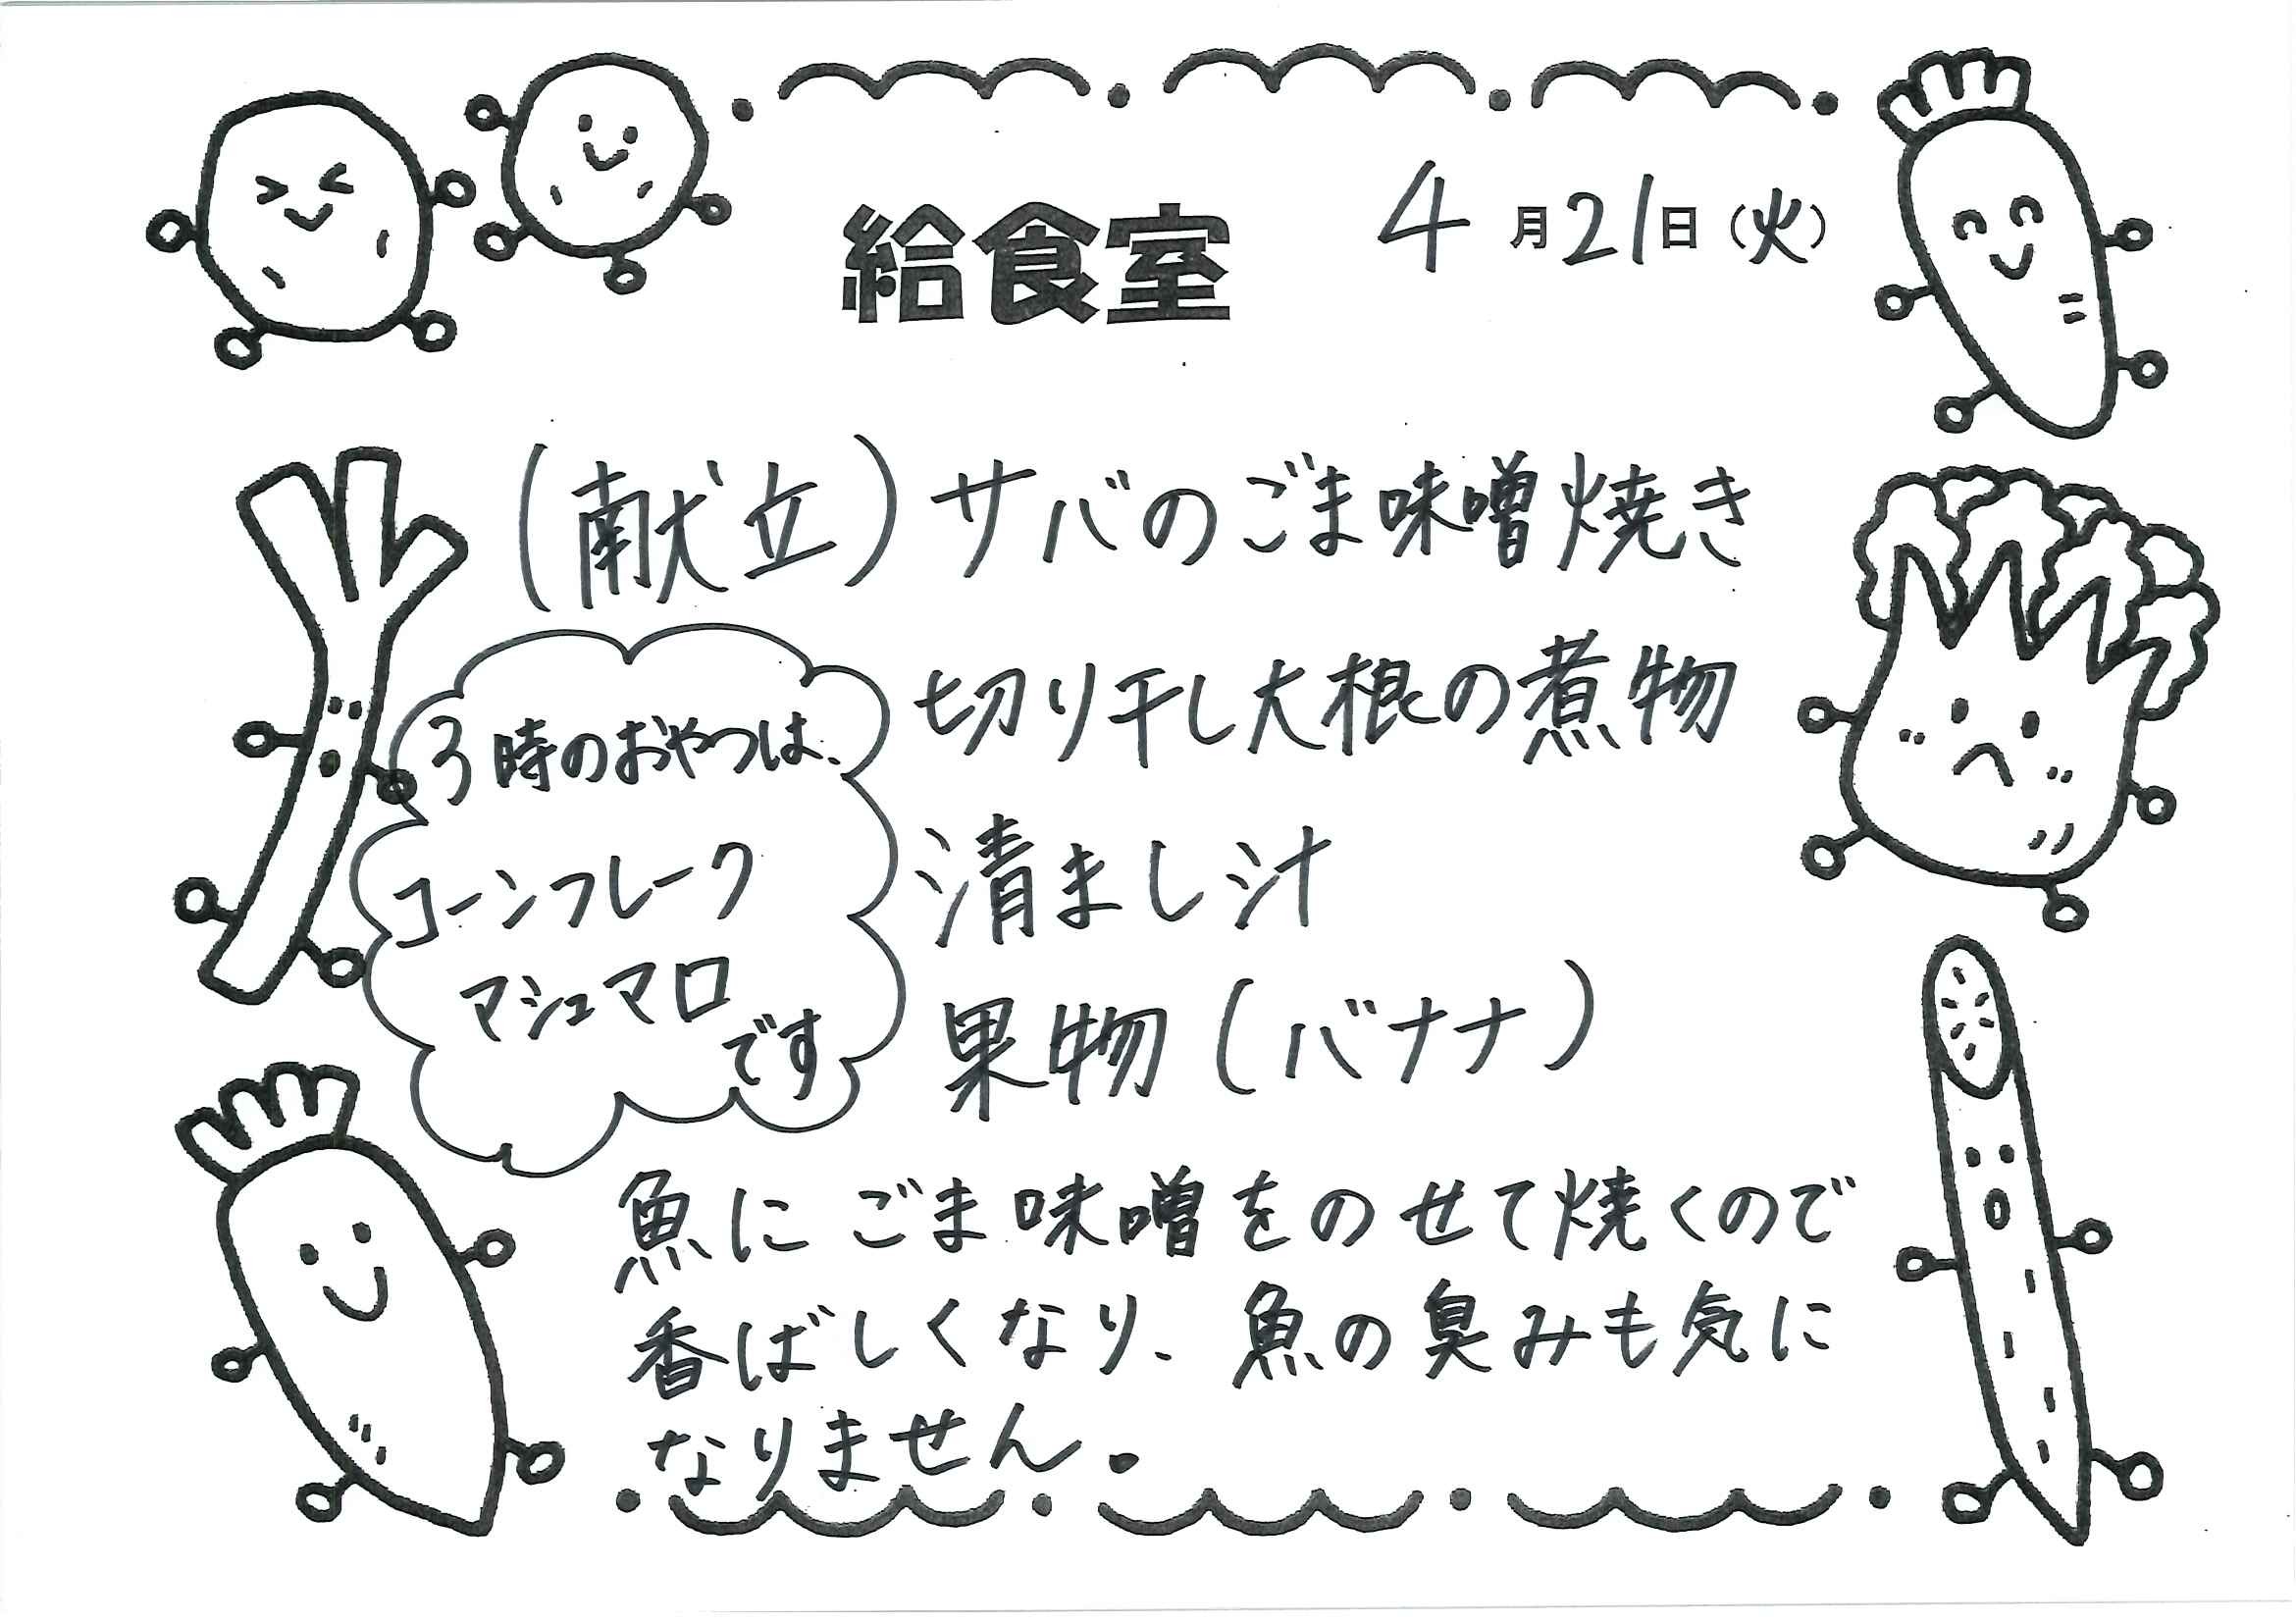 給食室
4月21日(火)
(献立)サバのごま味噌焼き
切り干し大根の煮物
清まし汁
果物(バナナ)
3時のおやつは、
コーンフレーク
マシュマロ
です
魚にごま味噌をのせて焼くので
香ばしくなり、魚の臭みも気に
なりません。